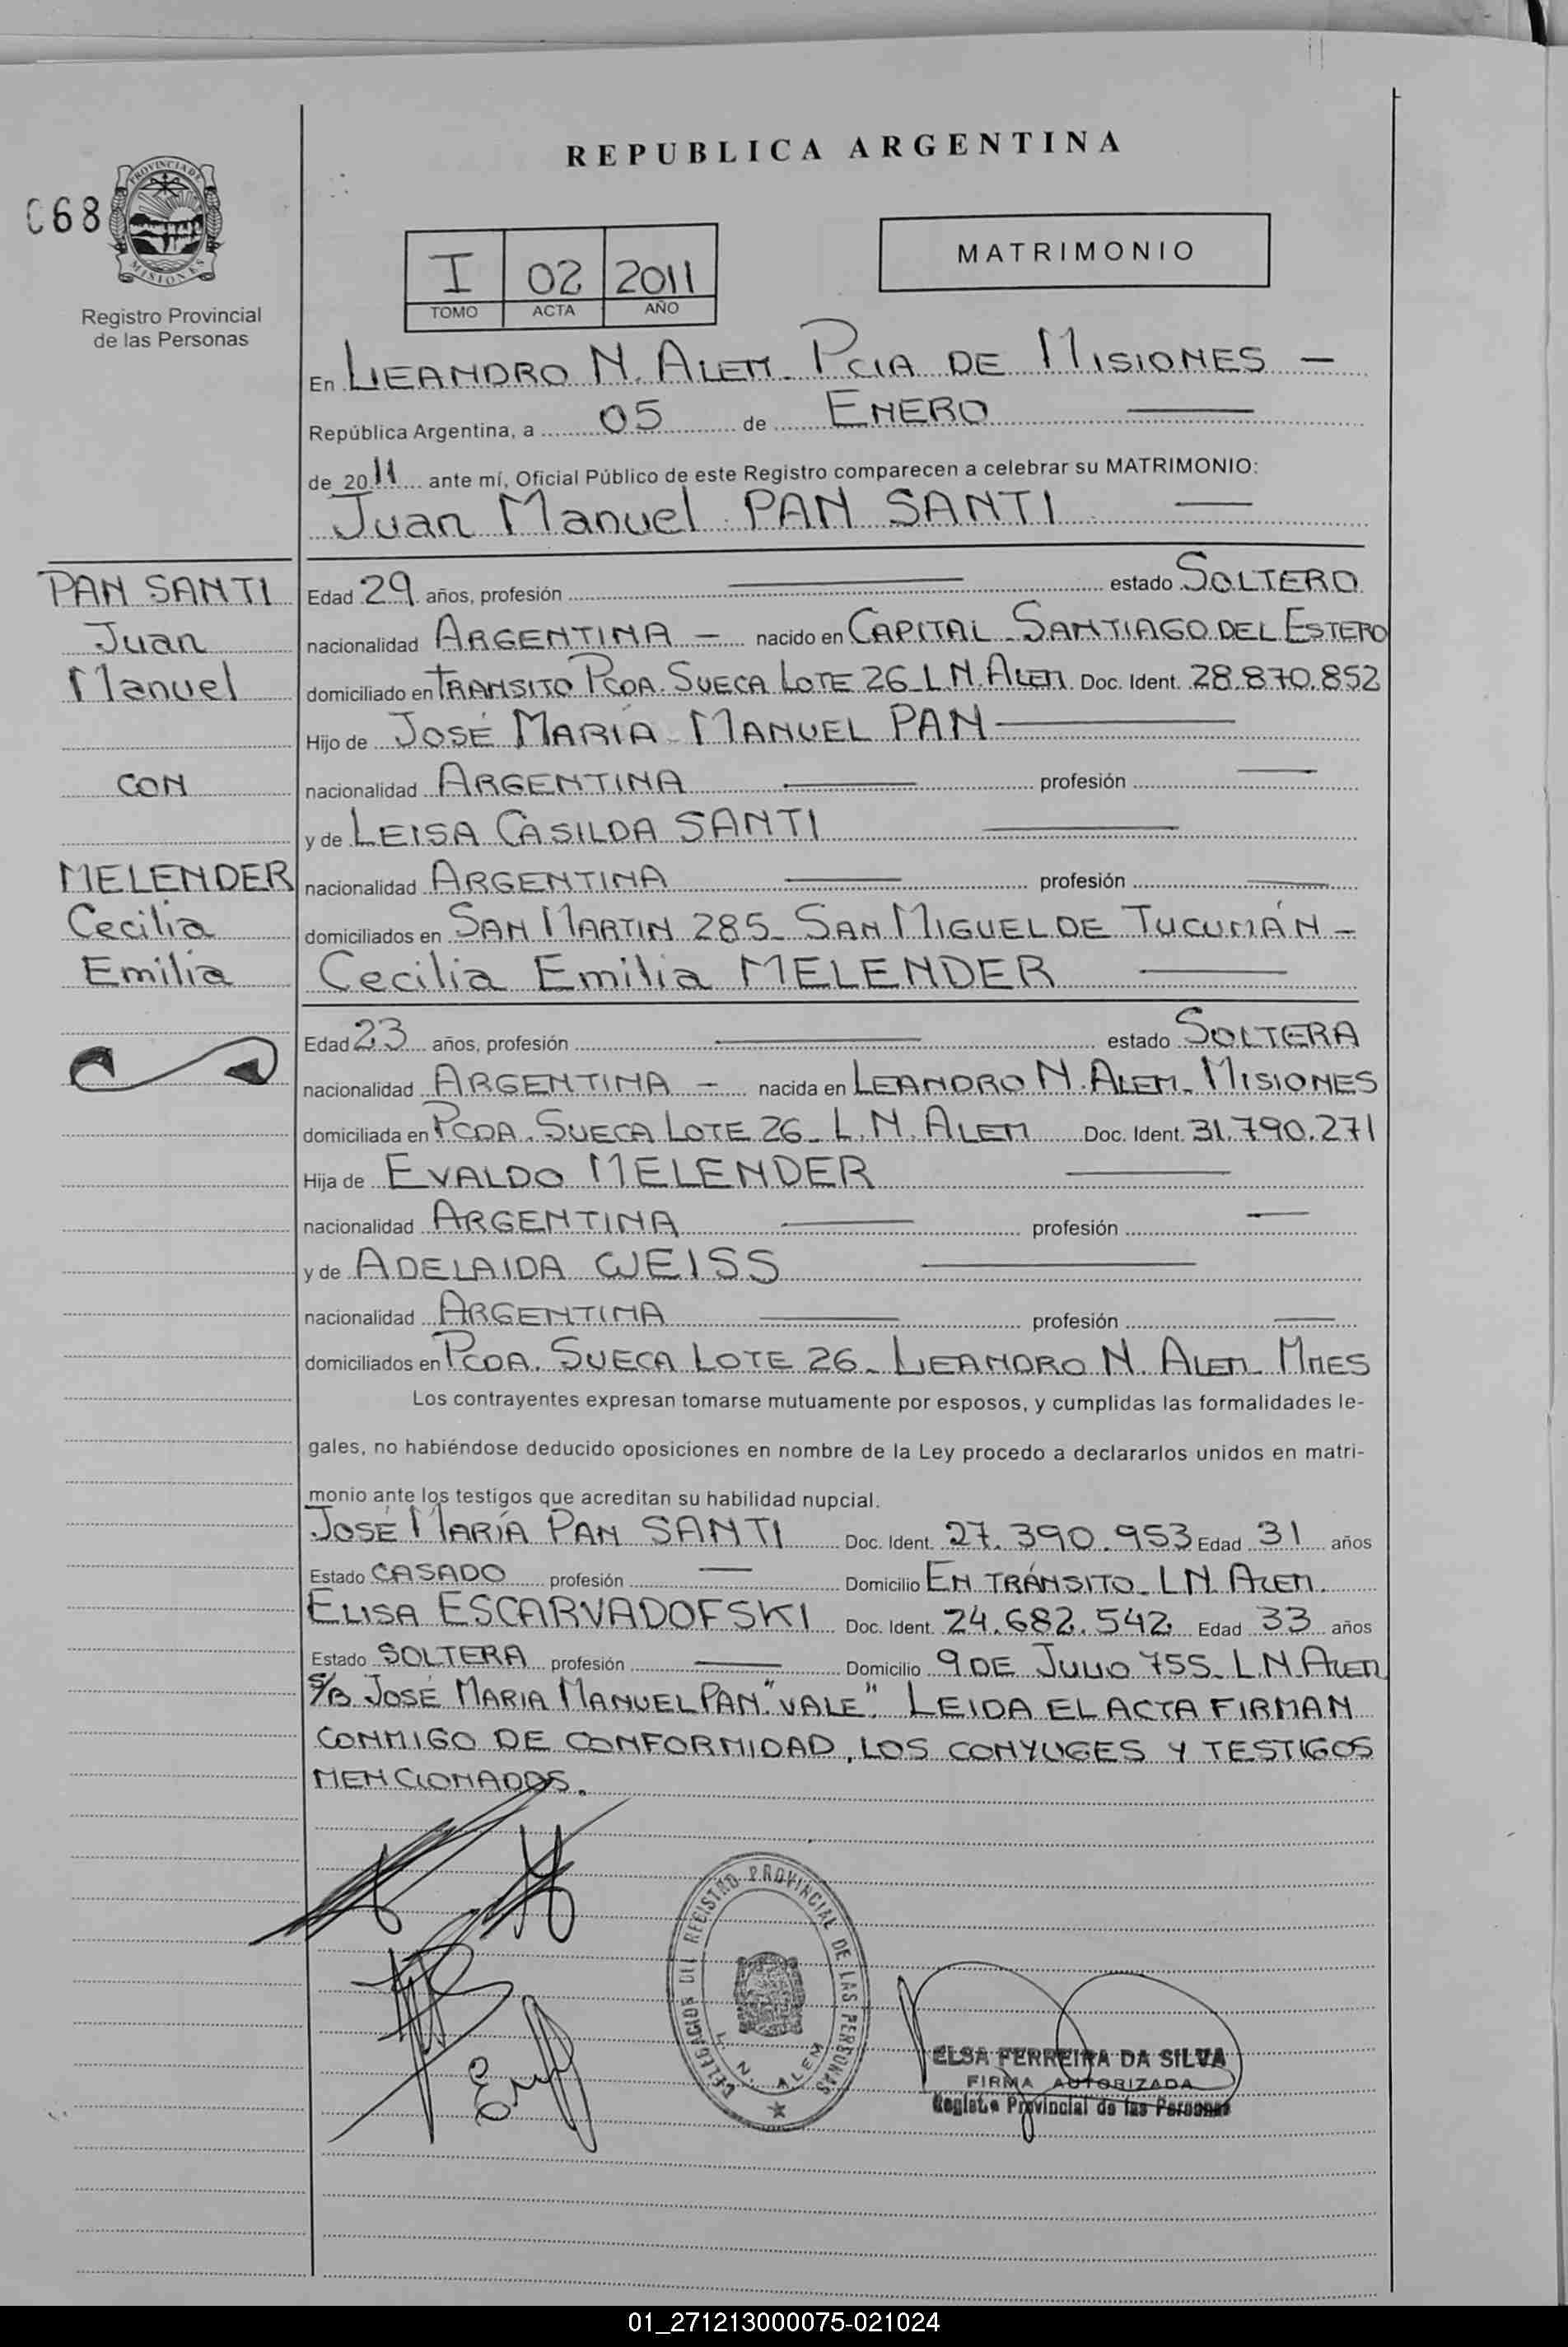 REPUBLICA ARGENTINA
068
PROVINCIA DE
MISIONES
Registro Provincial
de las Personas
I 02 2011
TOMO ACTA AÑO
MATRIMONIO
En LEANDRO N. ALEM. PCIA DE MISIONES —
República Argentina, a 05 de ENERO
de 2011 ante mí, Oficial Público de este Registro comparecen a celebrar su MATRIMONIO:
Juan Manuel PAN SANTI
PAN SANTI
Juan
Manuel
CON
MELENDER
Cecilia
Emilia
Edad 29 años, profesión — estado SOLTERO
nacionalidad ARGENTINA — nacido en CAPITAL SANTIAGO DEL ESTERO
domiciliado en TRANSITO PCDA. SUECA LOTE 26_L.N.ALEM Doc. Ident. 28.870.852
Hijo de JOSÉ MARÍA MANUEL PAN —
nacionalidad ARGENTINA — profesión —
y de LEISA CASILDA SANTI —
nacionalidad ARGENTINA — profesión —
domiciliados en SAN MARTIN 285_ SAN MIGUEL DE TUCUMÁN —
Cecilia Emilia MELENDER —
Edad 23 años, profesión — estado SOLTERA
nacionalidad ARGENTINA — nacida en LEANDRO N. ALEM_ MISIONES
domiciliada en PCDA. SUECA LOTE 26_ L.N. ALEM Doc. Ident. 31.790.271
Hija de EVALDO MELENDER —
nacionalidad ARGENTINA — profesión —
y de ADELAIDA WEISS —
nacionalidad ARGENTINA — profesión —
domiciliados en PCDA. SUECA LOTE 26_ LEANDRO N. ALEM_ MNES
Los contrayentes expresan tomarse mutuamente por esposos, y cumplidas las formalidades le-
gales, no habiéndose deducido oposiciones en nombre de la Ley procedo a declararlos unidos en matri-
monio ante los testigos que acreditan su habilidad nupcial.
JOSÉ MARÍA PAN SANTI Doc. Ident. 27.390.953 Edad 31 años
Estado CASADO profesión — Domicilio EN TRÁNSITO_ L.N. ALEM.
ELISA ESCARVADOFSKI Doc. Ident. 24.682.542 Edad 33 años
Estado SOLTERA profesión — Domicilio 9 DE JULIO 755_ L.N. ALEM
S/B JOSÉ MARIA MANUEL PAN. "VALE". LEIDA EL ACTA FIRMAN
CONMIGO DE CONFORMIDAD, LOS CONYUGES Y TESTIGOS
MENCIONADOS.
DELEGACION DEL REGISTRO PROVINCIAL DE LAS PERSONAS
L. N. ALEM
ELSA FERREIRA DA SILVA
FIRMA AUTORIZADA
Registro Provincial de las Personas
01_271213000075-021024